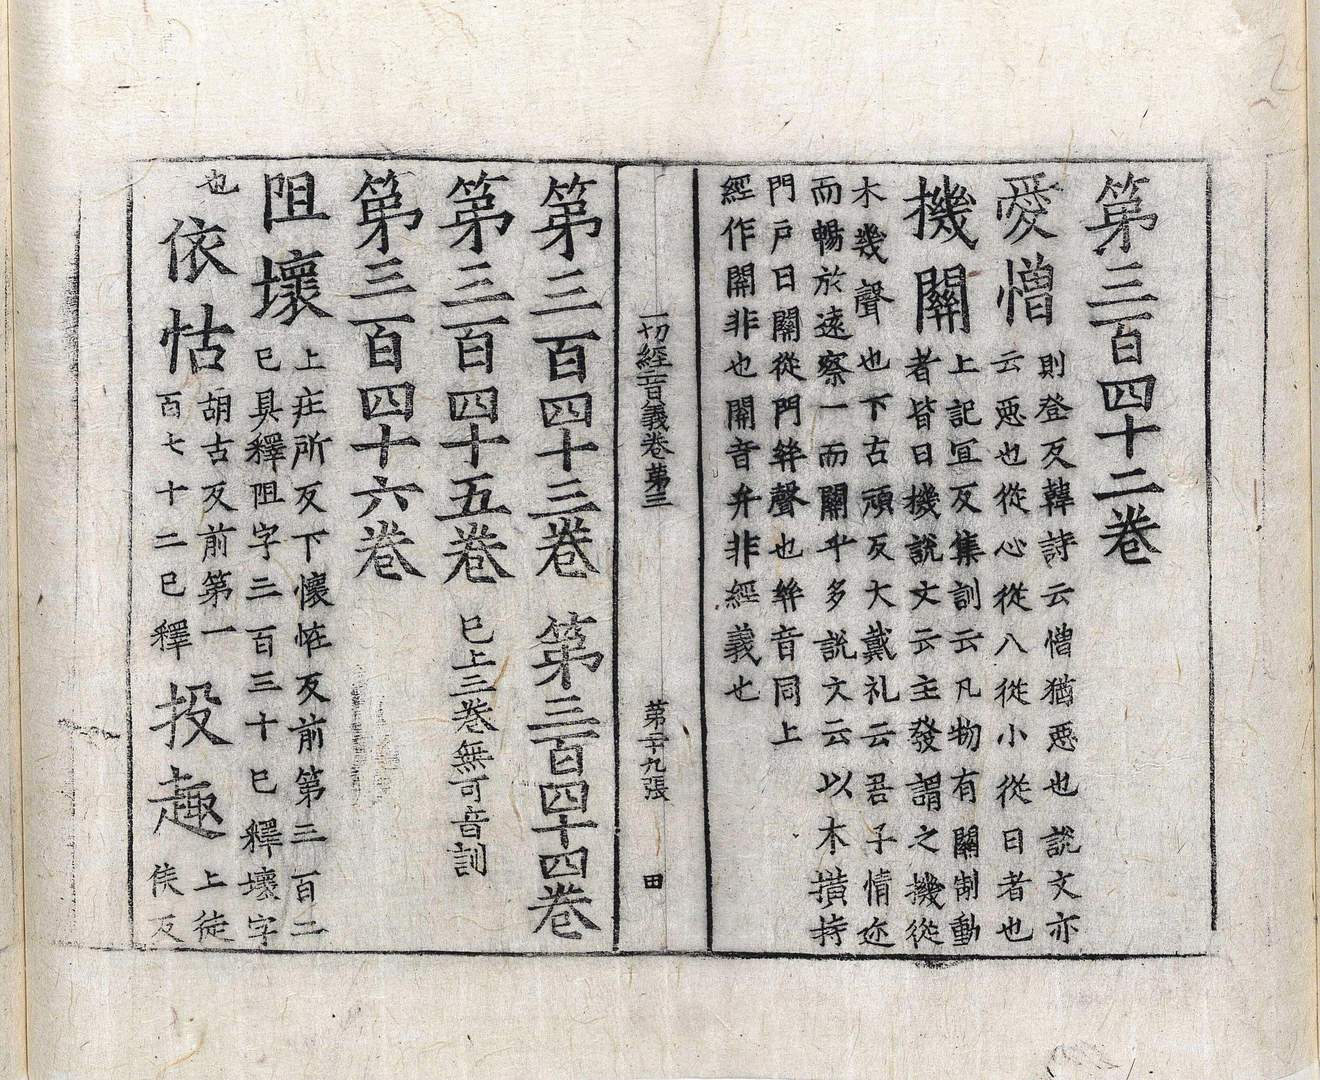 第三百四十二卷
愛憎
則登反韓詩云憎猶惡也說文亦
云惡也從心從八從小從日者也
機關
上記冝反集訓云凡物有關制動
者皆曰機說文云主發謂之機從
木幾聲也下古頑反大戴礼云吾子情迩
而暢於遠察一而關乎多說文云以木撗持
門戶曰關從門𢇇聲也𢇇音同上
經作開非也開音弁非經義也
一切經音義卷第三
第二十九張
田
第三百四十三卷 第三百四十四卷
第三百四十五卷
已上三卷無可音訓
第三百四十六卷
阻壞
上莊所反下懷恠反前第三百二
已具釋阻字三百三十已釋壞字
也
依怙
胡古反前第一
百七十二已釋
投趣
上徒
侯反